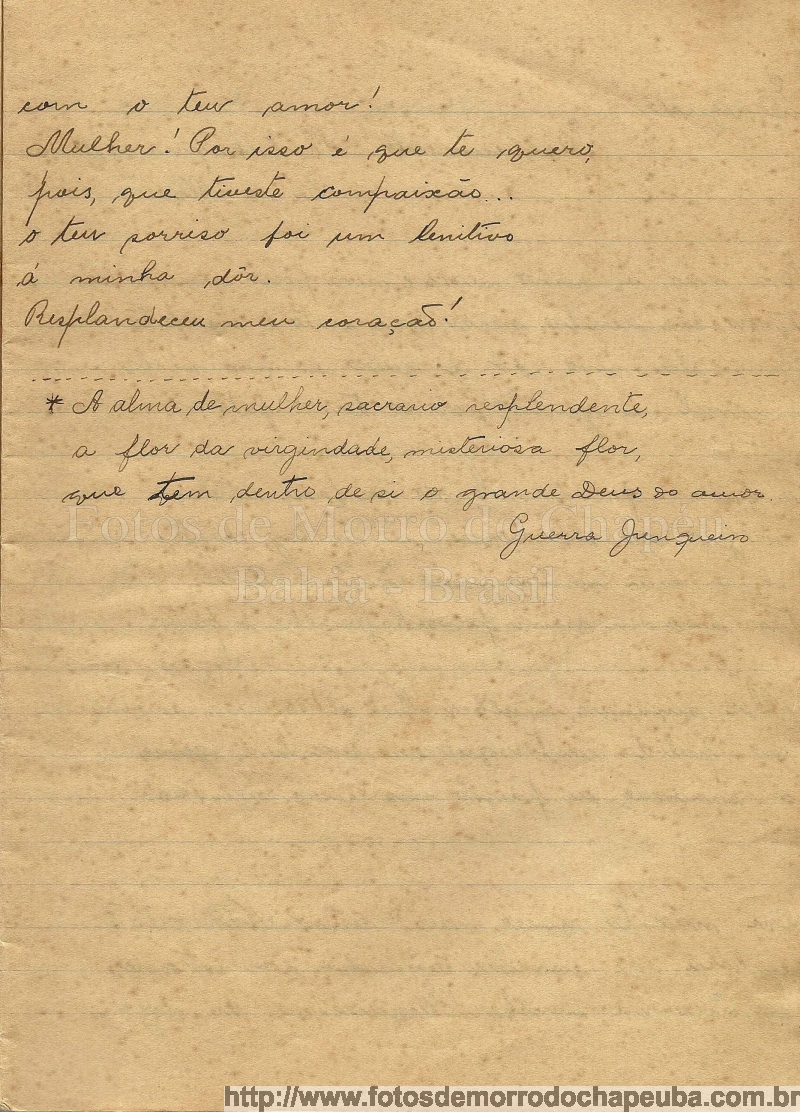 com o teu amor!
Mulher! Por isso é que te quero,
pois, que tiveste compaixão...
o teu sorriso foi um lenitivo
á minha dôr.
Resplandeceu meu coração!
* A alma de mulher, sacrario resplendente,
a flor da virgindade, misteriosa flor,
que tem dentro de si o grande Deus do amor.
Guerra Junqueiro
Fotos de Morro do Chapéu
Bahia - Brasil
http://www.fotosdemorrodochapeuba.com.br